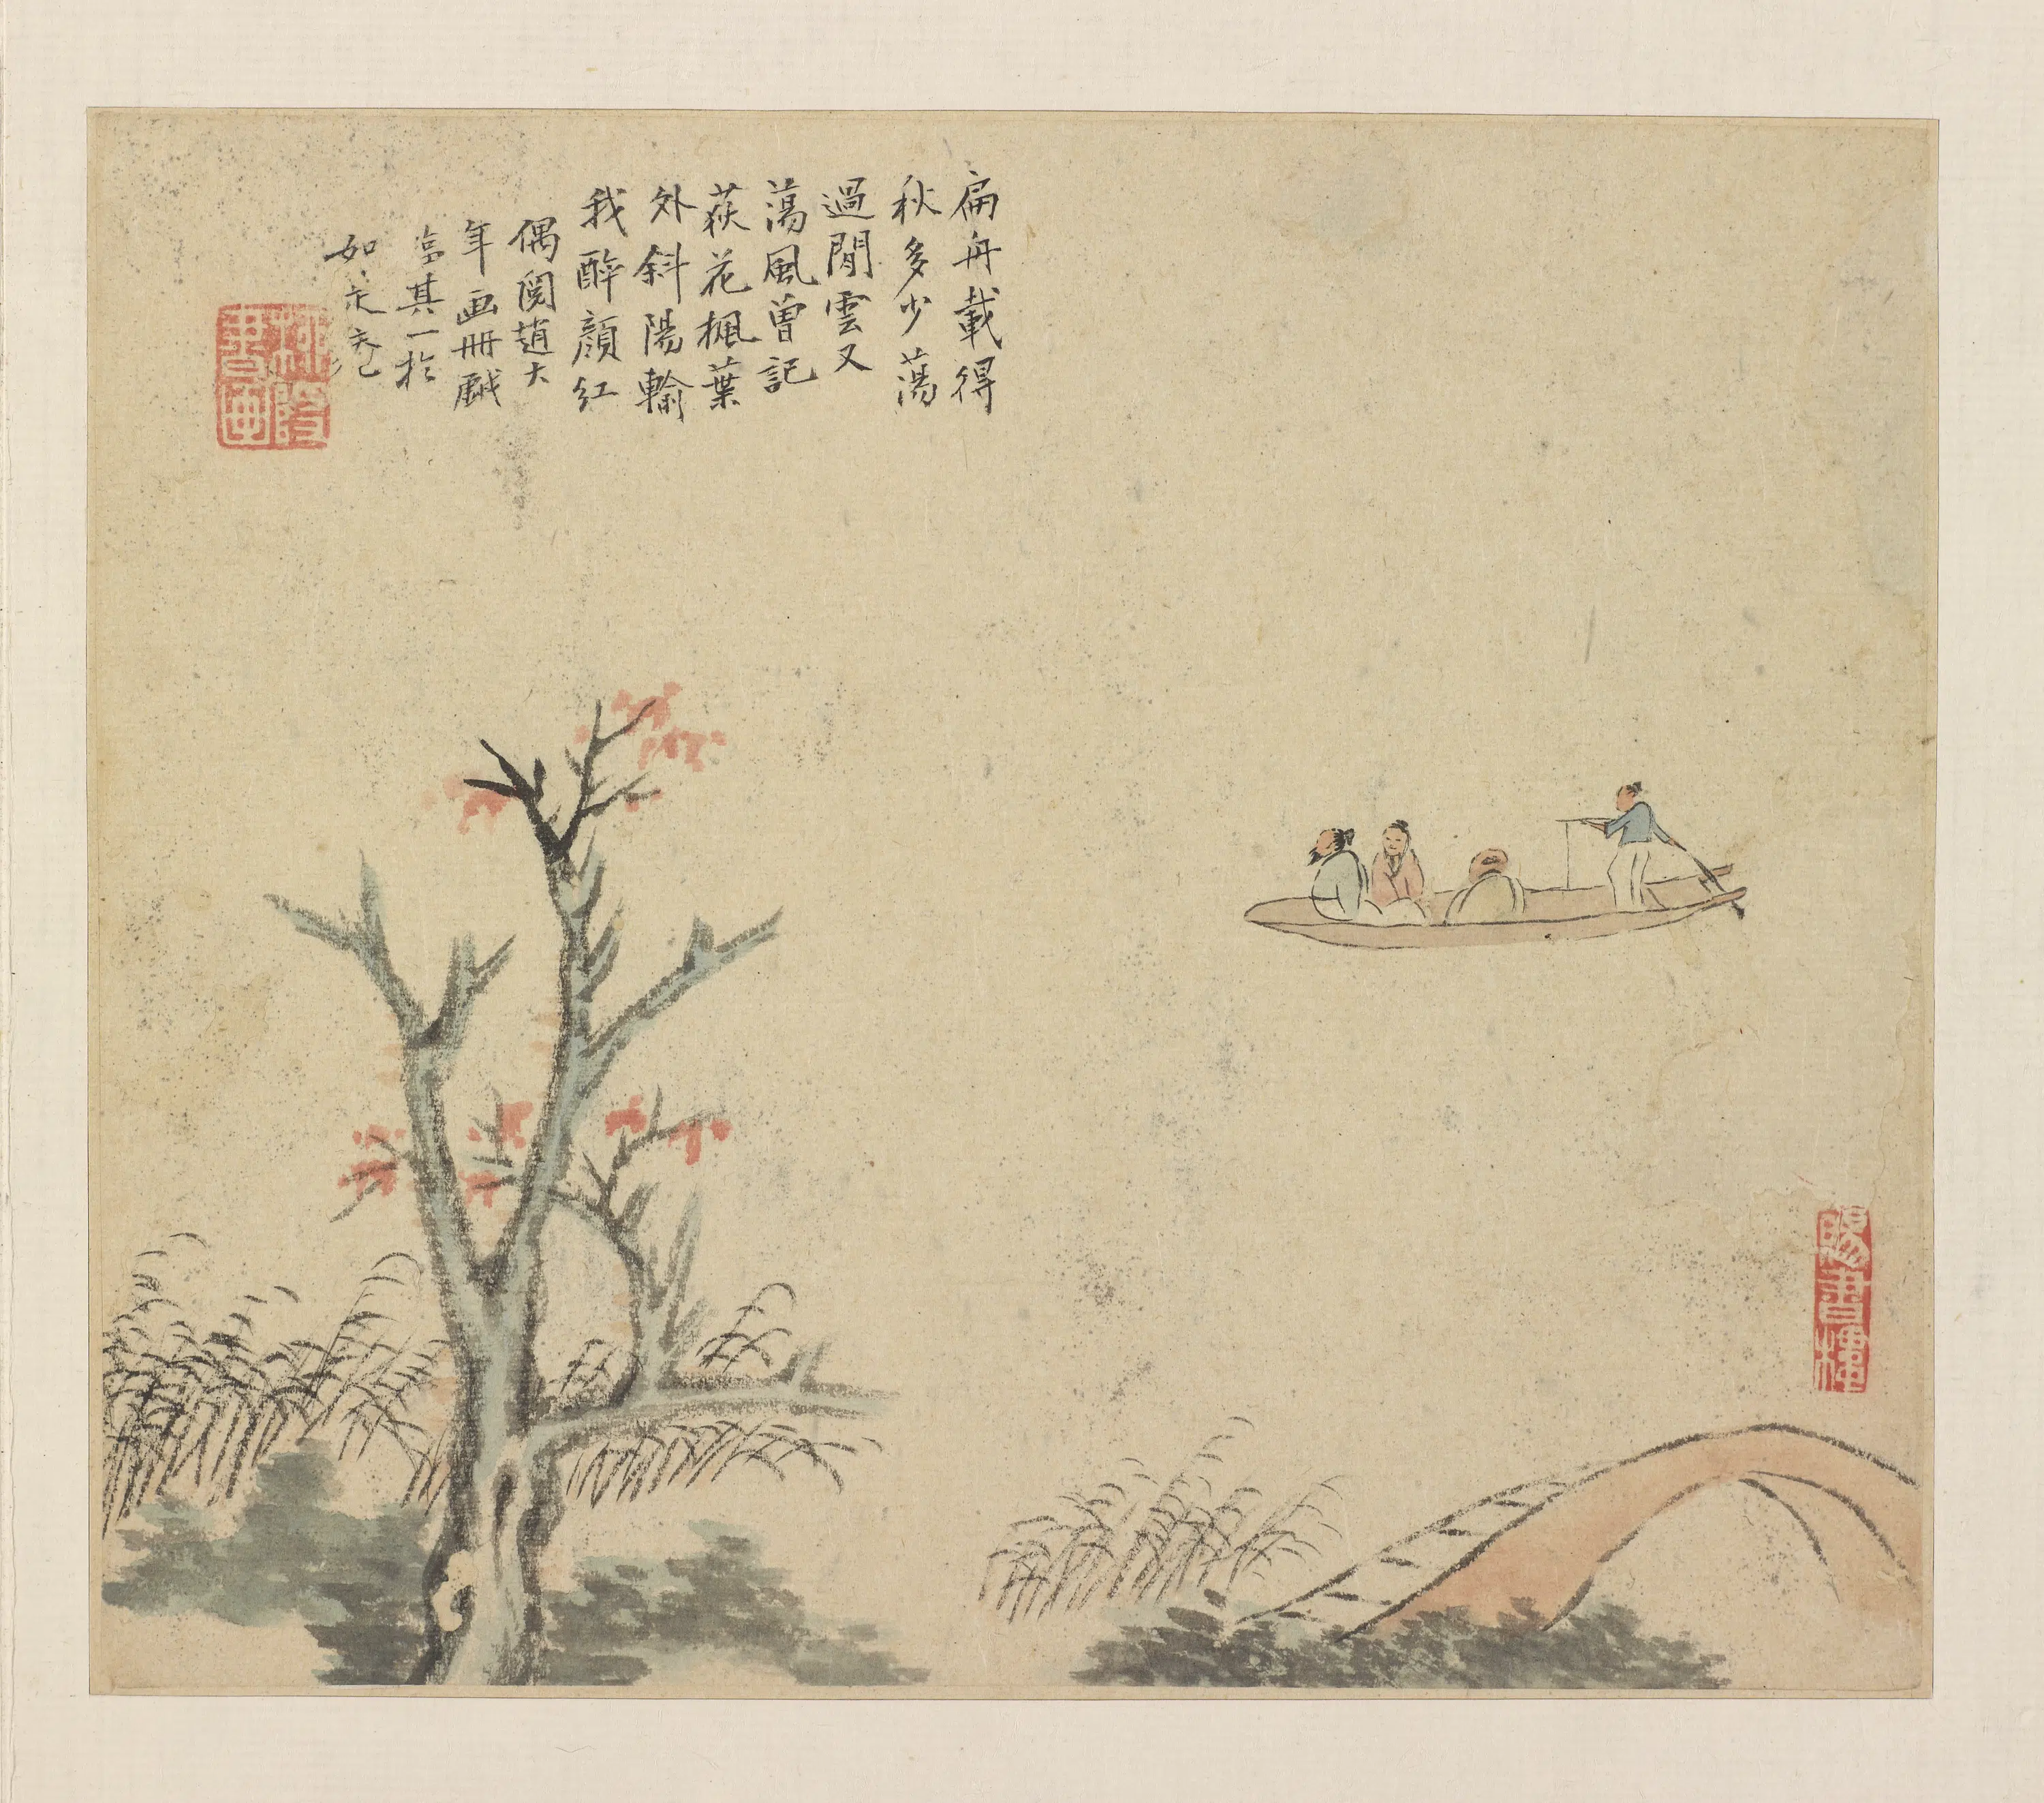 扁舟載得
秋多少蕩
過閒雲又
蕩風曾記
荻花楓葉
外斜陽輸
我醉顏紅
偶閱趙大
年画冊戱
其一於
如是
賜書樓